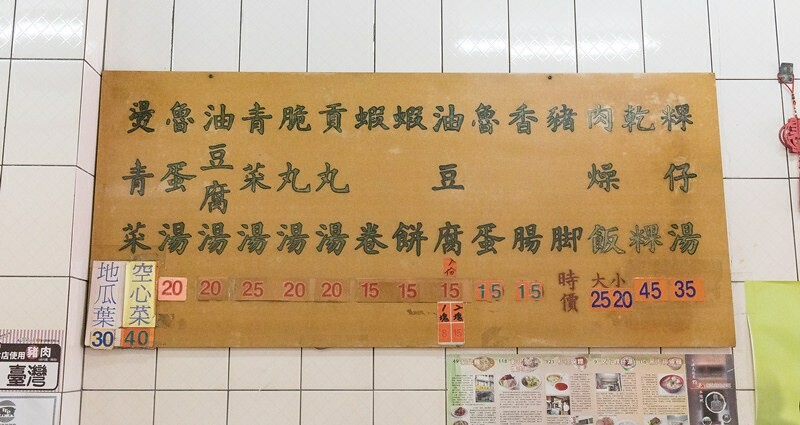 粿仔湯
35
乾粿
45
肉燥飯
大 小
25 20
豬脚
時價
香腸
15
魯蛋
15
油豆腐
15
2塊
15
1塊
蝦餅
15
蝦卷
15
貢丸湯
20
脆丸湯
20
青菜湯
25
油豆腐湯
20
魯蛋湯
20
燙青菜
空心菜
40
地瓜葉
30
店使用豬肉
臺灣